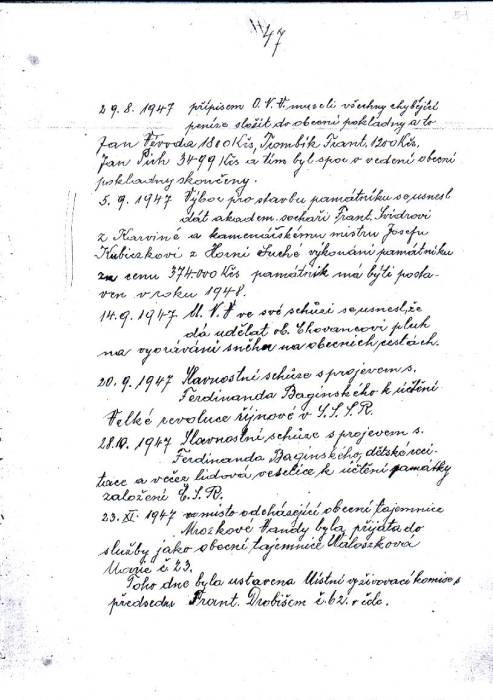 47
29.8.1947 přípisem O.V.V. museli všechny chybějící
peníze složit do obecní pokladny a to
Jan Vévoda 1800 Kčs, Trombik Frant. 1200 Kčs,
Jan Pich 3499 Kčs a tím byl spor o vedení obecní
pokladny skončeny.
5.9.1947 Výbor pro stavbu památníku se usnesl
dát akadem. sochaři Frant. Svidrovi
z Karviné a kamenářskému mistru Josefu
Kubiczkovi z Horní Suché vykonání památníku
za cenu 374.000 Kčs památník má býti posta-
ven v roku 1948.
14.9.1947 M.V.V ve své schůzi se usnesl, že
dá udělat ob. Chovancovi pluh
na vyorávání sněhu na obecních cestách.
20.9.1947 Slavnostní schůze s projevem s.
Ferdinanda Baginského k účtění
Velké revoluce říjnové v S.S.S.R.
28.10.1947 Slavnostní schůze s projevem s.
Ferdinanda Baginského, dětské reci-
tace a večer lidová veselice k účtění památky
založení Č.S.R.
23.XI.1947 na místo odcházející obecní tajemnice
Mrožkové Vandy byla přijata do
služby jako obecní tajemnice Waloszková
Marie č.23.
Toho dne byla ustavena Místní vyživovací komise s
předsedou Frant. Drobišem č.62. v čele.